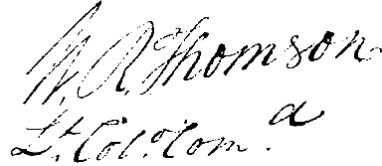 W. R. Thomson
Lt. Col. Com. a